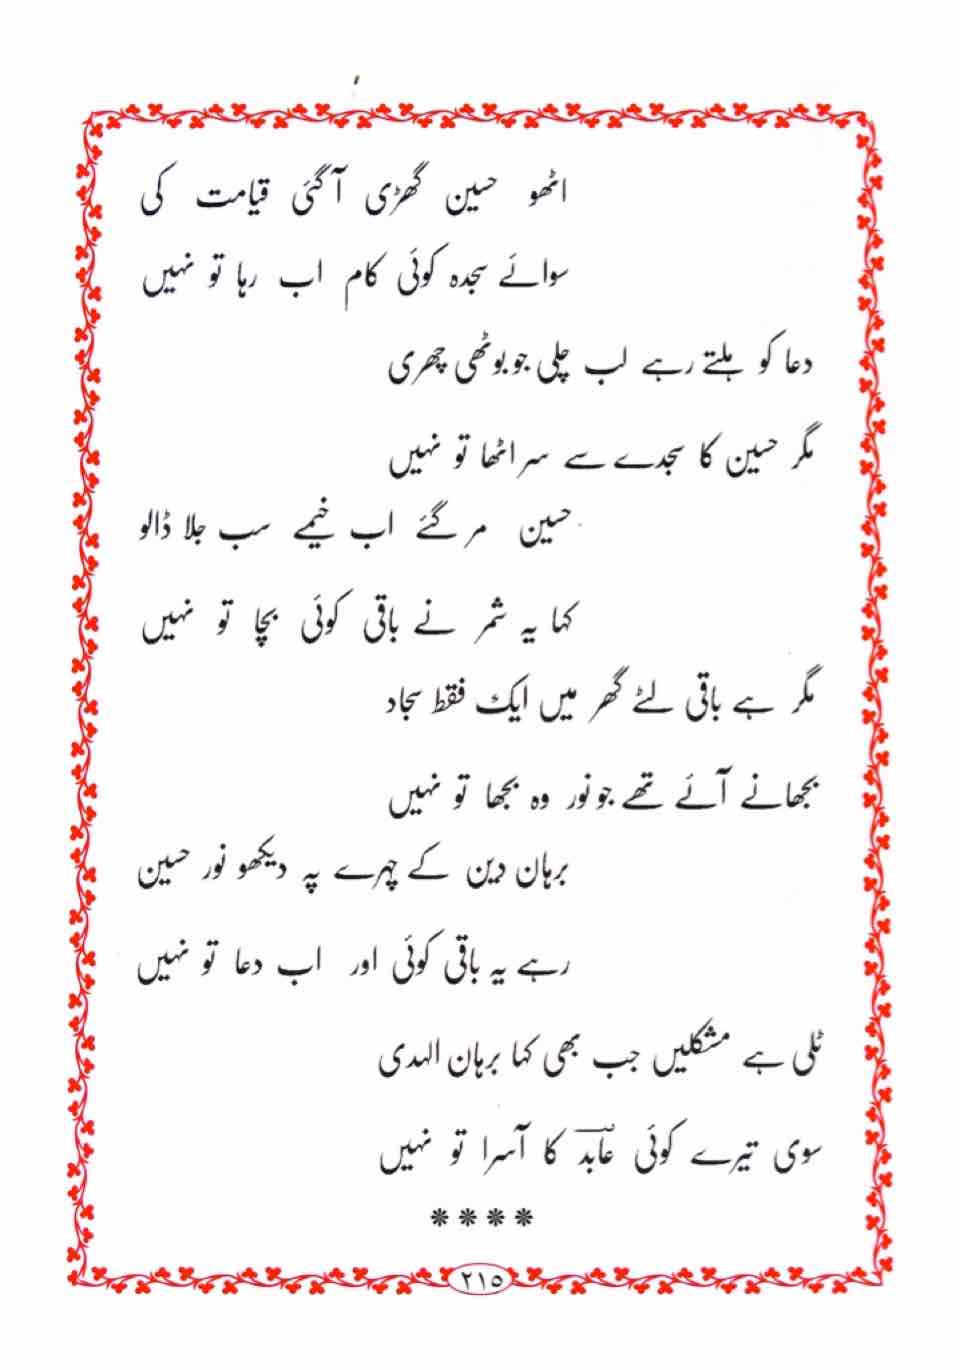 اٹھو حسین گھڑی آ گئی قیامت کی
سوائے سجدہ کوئی کام اب رہا تو نہیں
دعا کو ہلتے رہے لب چلی جو بوٹھی چھری
مگر حسین کا سجدے سے سر اٹھا تو نہیں
حسین مر گئے اب خیمے سب جلا ڈالو
کہا یہ شمر نے باقی کوئی بچا تو نہیں
مگر ہے باقی لٹے گھر میں ایک فقط سجاد
بجھانے آئے تھے جو نور وہ بجھا تو نہیں
برہان دین کے چہرے پہ دیکھو نور حسین
رہے یہ باقی کوئی اور اب دعا تو نہیں
ٹلی ہے مشکلیں جب بھی کہا برہان الہدی
سوی تیرے کوئی عابدؔ کا آسرا تو نہیں
****
۲۱۵